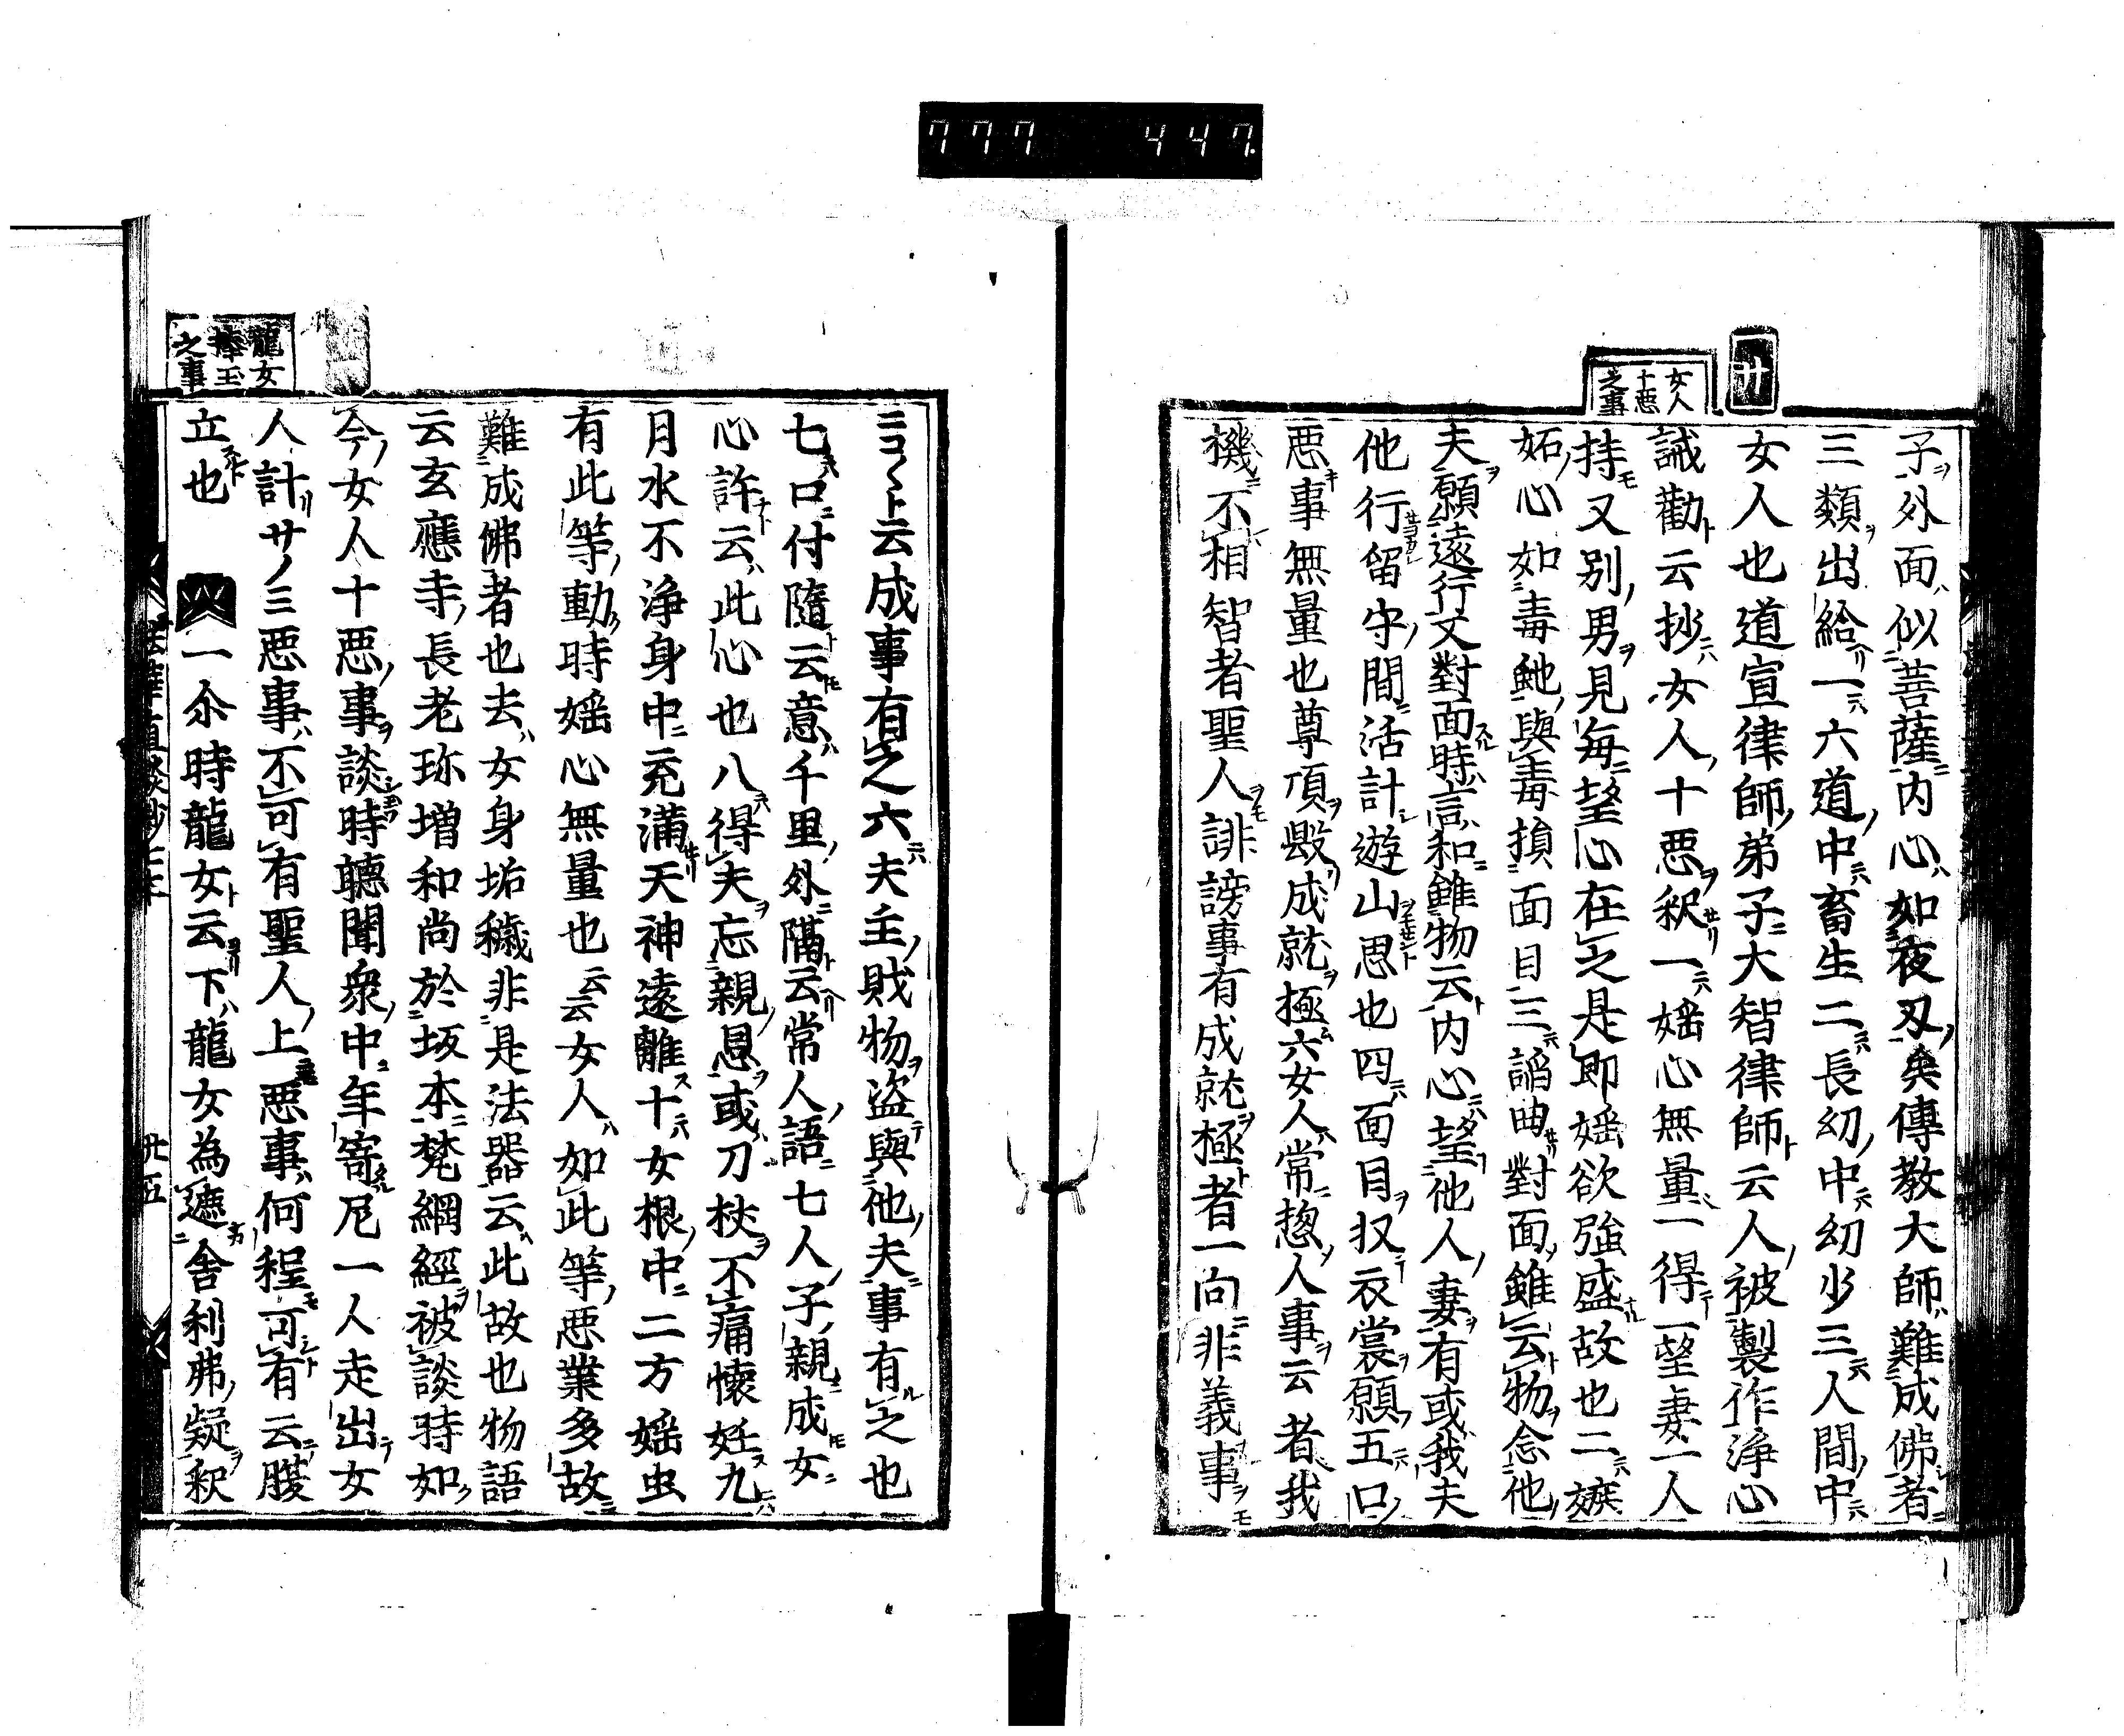 777 447.
廿
女人
十悪
之事
子ヲ外面ハ似ニ菩薩ニ内心ハ如ニ夜刄ノ矣傳教大師ハ難ニ成佛シ者ニ
三類ヲ出給ヘリ一ニハ六道ノ中ニハ畜生二ニハ長幼ノ中ニハ幻少三ニハ人間ノ中ニハ
女人也道宣律師ノ弟子ニ大智律師ト云人ノ被製作浄心
誡勸ト云抄ニハ女人ノ十悪ヲ釈セリ一ニハ婬心無量ニ得テ一望妻一人
持モ又別ノ男ヲ見毎ニ望心在之是即婬欲強盛ナル故也二ニハ嫉
妬ノ心如ニ毒虵ノ與毒損面目三ニハ謟曲セリ對面ノ雖云ト物ヲ念他ノ
夫ヲ願遠行丈對面スル時ハ言ハ和ニ雖物云ト内心ニハ望他人ノ妻ヲ有或ハ我夫
他行留守ノ間ニ活計シ遊山ヲモセント思也四ニハ面目ヲ扠テ衣裳ヲ願ノ五ニハ口ノ
悪事キ無量也尊項ヲ毀ノ成就ヲ極ム六女人ハ常ニ惣ノ人事ヲ云者ハ我
機ニ不ハ相智者聖人ヲモ誹謗事有成就ヲ極ト者一向ニ非義事ヲモ
云成事有之六ニハ夫主ノ賎物ヲ盗テ與他ノ夫ニ事有ル之也
七ニハ口ニ付隨ト云モ意ハ千里ノ外ニ隔ト云ヘリ常人ノ語ニ七人ノ子ノ親ニ成トモ女ニ
心許ナト云ハ此心也八ニハ得夫ヲ忘ニ親ノ恩ヲ或ハ刀杖ヲ不痛懐妊ス九ニハ
月水不浄身中ニ充滿セリ天神遠離ス十ニハ女根ノ中ニ二方婬虫
有此等ノ動ク時婬心無量也云云女人ハ如此等ノ悪業多故ニ
難ニ成佛者也去ハ女身垢穢非ニ是法器云ハ此故也物語
云玄應寺ノ長老珎増和尚於ニ坂本ニ梵網經ヲ被談時如ノ
今ノ女人十悪ノ事ヲ談シ玉フ時聽聞衆ノ中ニ年寄タル尼一人走出テ女
人計リサノミ悪事ハ不可有聖人ノ上ニ悪事ハ何程モ可シト有云テ腹
立スト也 一尒時龍女ト云ヨリ下ハ龍女為ニ遮ニ舎利弗ノ疑ヲ釈
龍女
捧玉
之事
法華直談抄
廿五